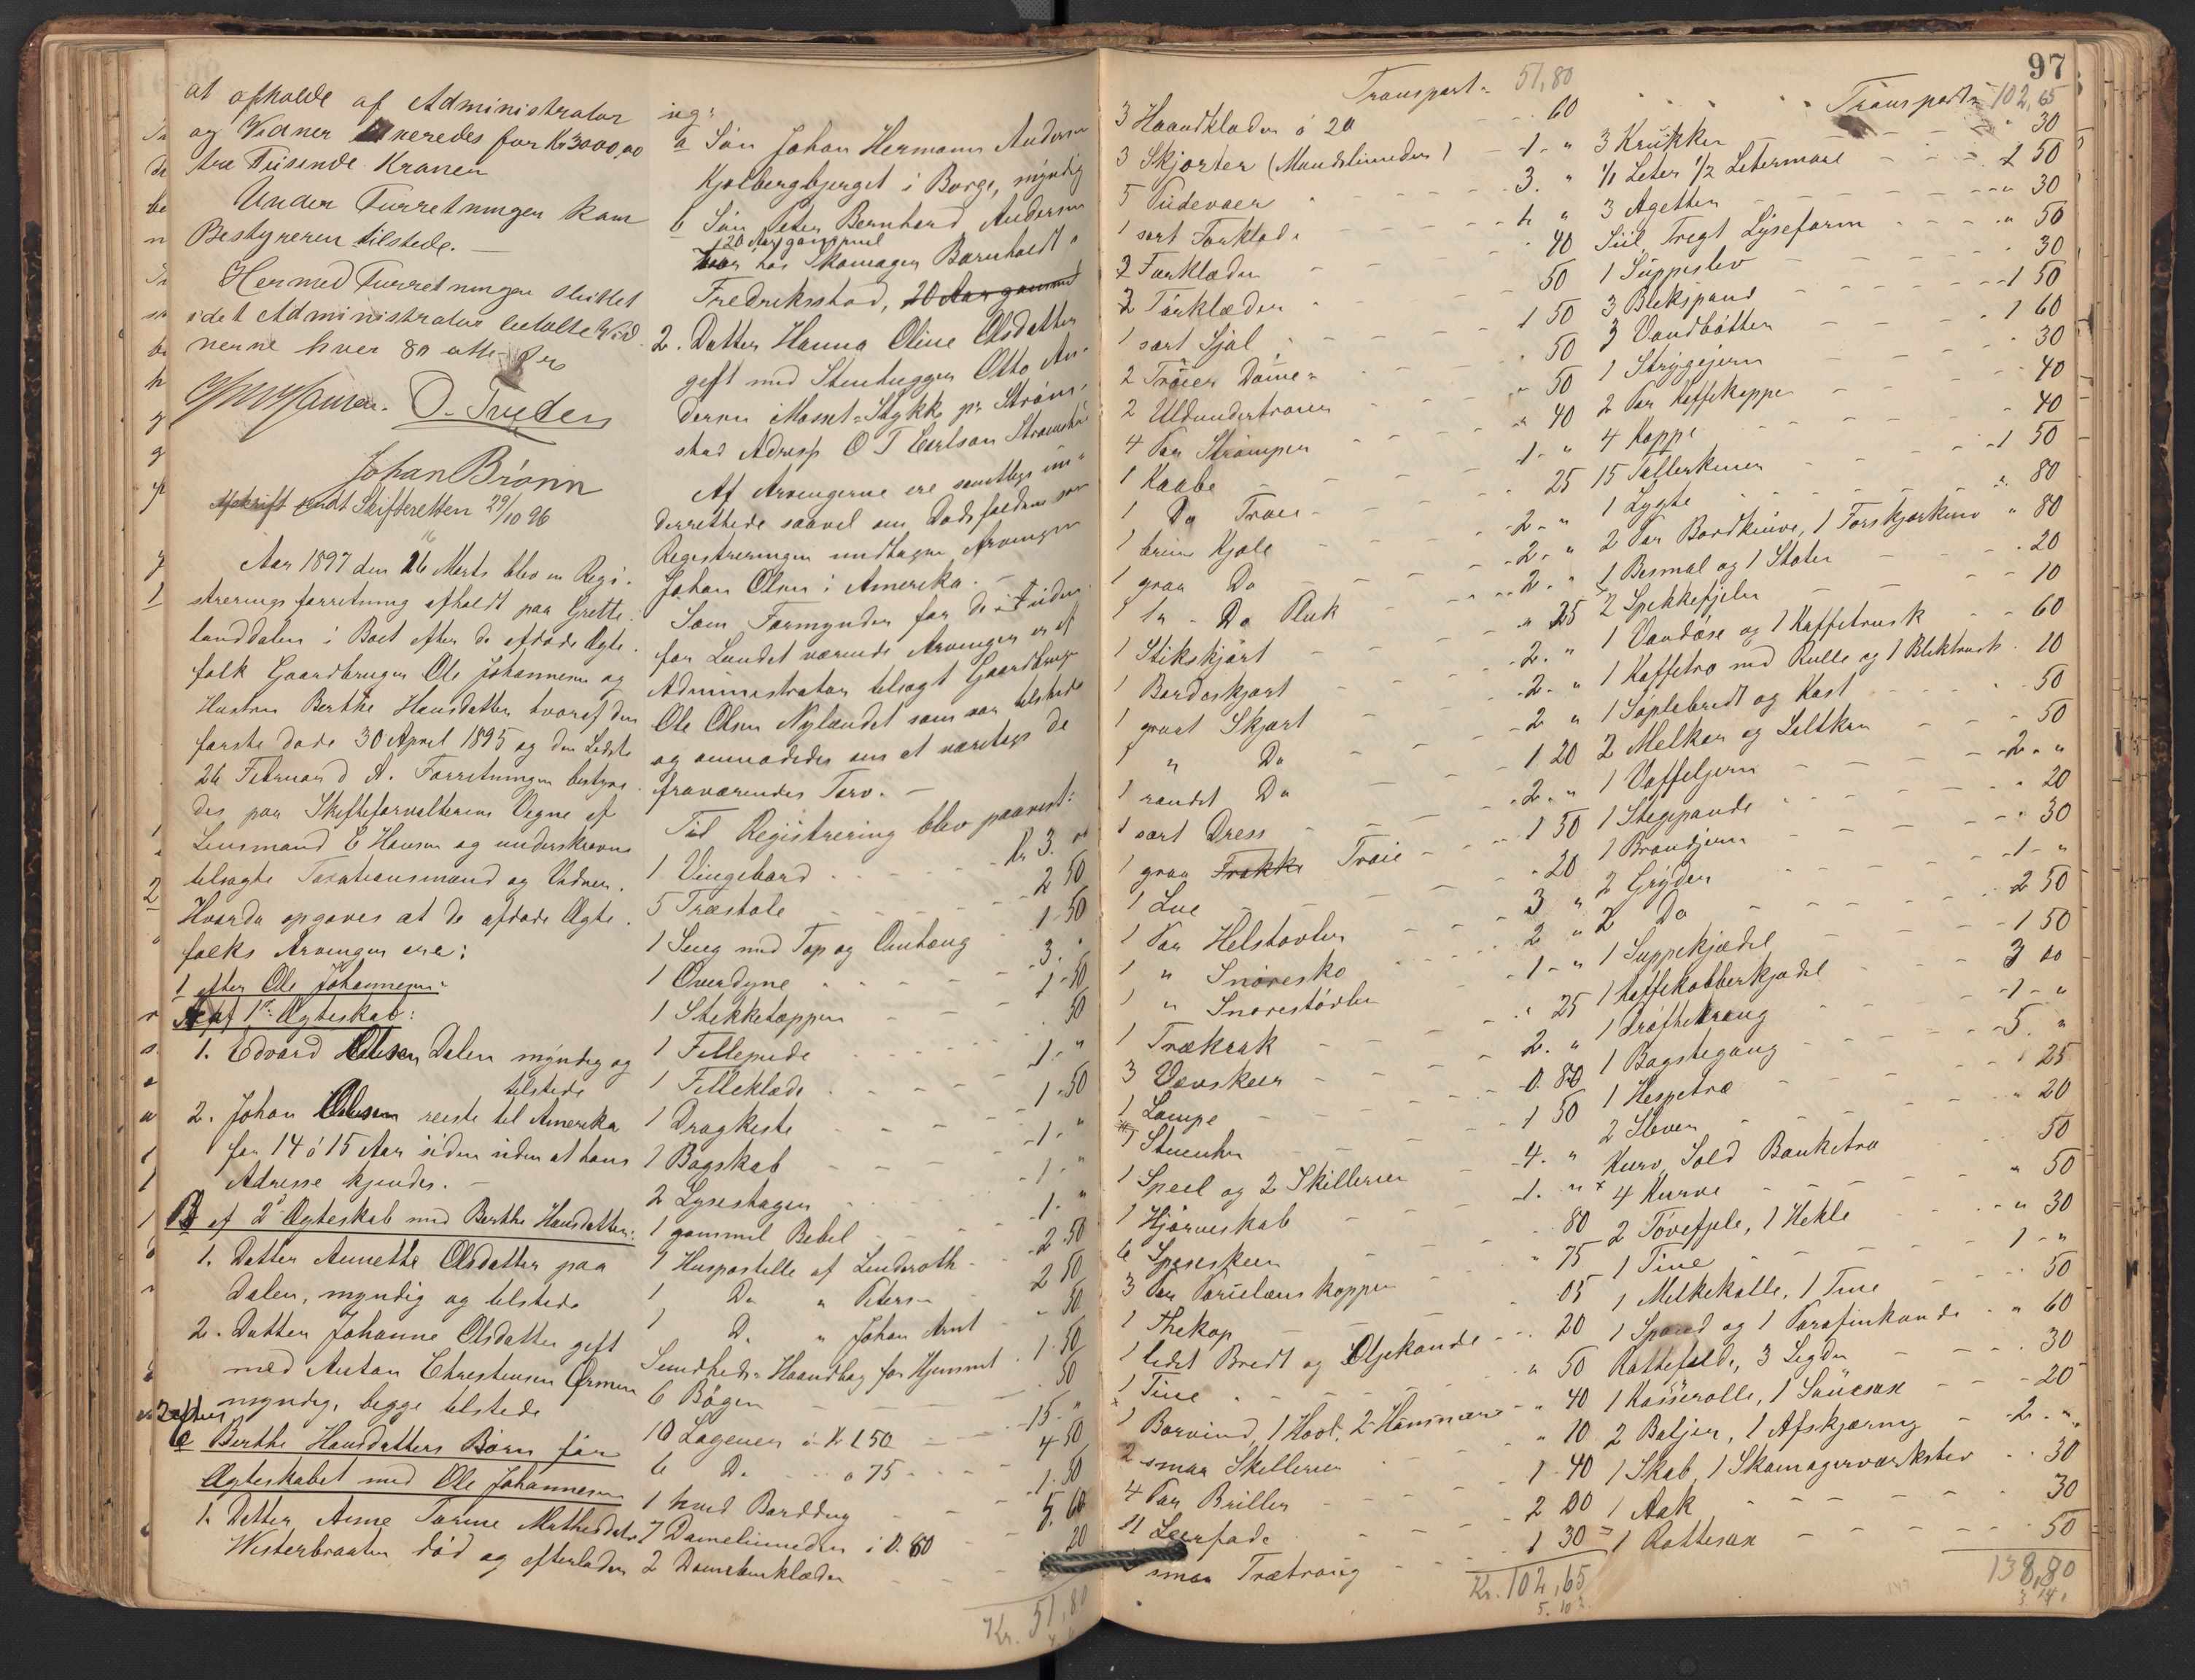 at afholde af Administrator
og Vidner neredes for Kr 3000,00
tre Tusende Kroner
Under Forretningen kom
Bestyreren tilstede. —
Hermed Forretningen sluttet
idet Administrator betalte Vid
nerne hver 80 otti Øre
O. Tveden
Johan Brönn
Afskrift sendt Skifteretten 29/10 96
Aar 1897 den 16 Marts blev en Regi-
streringsforretning afholdt paa Grette-
landdalen i Boet efter de afdøde Ægte-
folk Gaardbruger Ole Johannesen og
Hustru Berthe Hansdatter hvoraf den
første døde 30 April 1895 og den Sidste
26 Februar d A. Forretningen bestyre-
des paa Skifteforvalterens Vegne af
Lensmand E Hansen og underskrevne
tilsagte Taxationsmænd og Vidner.
Hvorda opgaves at de afdøde Ægte-
folks Arvinger ere:
1 efter Ole Johannesen:
A af 1ste Ægteskab:
1. Edvard Olsen Dalen myndig og
tilstede
2. Johan Olsen reiste til Amerika
for 14 á 15 Aar siden uden at hans
Adresse kjendes. —
B af 2det Ægteskab med Berthe Hansdatter:
1. Datter Annette Olsdatter paa
Dalen, myndig og tilstede
2. Datter Johanne Olsdatter gift
med Anton Christensen Ørmen
myndig, begge tilstede
2 efter
C Berthe Hansdatters Børn før
Ægteskabet med Ole Johannesen
1. Datter Anne Torine Mathisdatter
Westerbraaten død og efterladen
sig:
a Søn Johan Hermann Andersen
Kjølbergbjerget i Borge, myndig
b Søn Peter Bernhard Andersen
20 Aar gammel
hos Skomager Bærnholdt i
Fredriksstad, 20 Aar gammel
2. Datter Hanna Oline Olsdatter
gift med Stenhugger Otto An-
dersen Stykke pr Ström-
stad Adresse O T Carlson Strömstad
Af Arvingerne ere samtlige un-
derrettede saavel om Dødsfaldene som
Registreringen undtagen Arvingen
Johan Olsen i Amerika. —
Som Formynder for de iuden-
for Landet værende Arvinger er af
Administrator tilsagt Gaardbruger
Ole Olsen Nylændet som var tilstede
og anmodedes om at varetage de
fraværendes Tarv. —
Til Registrering blev paavist:
1 Vingebord Kr 3. 00
5 Træstole 2 50
1 Seng med Top og Omhæng 1-50
1 Overdyne 3. "
1 Stikketæppe 1-50
1 Fillepude 50
1 Filleklæde 1-"
1 Dragkiste 1-50
1 Bogskab 1-"
2 Lysestager 1-"
1 gammel Bibel 1-"
1 Huspostille af Linderoth 2 50
1 Do " Petersen 2 50
1 Do " Johan Arnt " 50
Sundheds-Haandbog for Hjemmet 1.50
6 Bøger 50
10 Lagener á Kr 1.50 15-"
6 Do á 75 4 50
1 hvid Borddug 1.50
7 Damelinneder á 0.80 5.60
2 Damebenklæder 20
Kr. 51,80
97
Transport = 51,80
3 Haandklæder á 20 60
3 Skjorter (Mandslinneder) 1-"
5 Pudevaer 3. "
1 sort Forklæde
2 Forklæder 40
2 Tørklæder 50
1 sort Sjal 1 50
2 Trøier Dame- 50
2 Uldundertrøier " 50
4 Par Strømper " 40
1 Kaabe 1-"
1 Do Trøie 25
1 brun Kjole 2-"
1 graa Do 2. "
1 Do Pluk 2. "
1 Stikskjørt " 25
1 Bordoskjørt 2. "
1 graat Skjørt 2. "
1 " Do 2 "
1 randet Do 1 20
1 sort Dress 2. "
1 graa Frakke Trøie 1 50
1 Lue 20
1 Par Helstøvler 3 "
1 " Snøresko 2 "
1 " Snørestøvler 1-"
1 Trækrak 25
3 Vævskeer 2. "
1 Lampe 0.80
1 Stueuhr 1 50
1 Speil og 2 Skillerier 4. "
1 Hjørneskab 1. "
6 Spiseskeer 80
3 Par Porselænskopper 75
1 Thekop 05
1 lidet Bredt og Oljekande 20
1 Tine " 50
1 Borvind, 1 Høvl, 2 Hammere " 40
2 smaa Skillerier " 10
4 Par Briller 1 40
11 Leerfade 2 20
smaa Trætraug 1 30
Kr. 102,65
Transport = 102,65
3 Krukker 30
1/1 Leter 1/2 Letermaal 50
3 Agetter 30
Siil Tregt Lyseform " 50
1 Suppeslev 30
3 Blikspand 1 50
3 Vandbøtter 1 60
1 Strygejern 30
2 Par Kaffekopper 40
4 Koppe 40
15 Tallerkener 1 50
1 Lygte 80
2 Par Bordknive, 1 Forskjærkniv " 80
1 Bismal og 1 Støter 20
2 Spekkefjeler 10
1 Vandøse og 1 Kaffetrusk 60
1 Kaffetro med Rulle og 1 Bliktrusk 10
1 Søplebredt og Kost 50
2 Melkar og Saltkar 50
1 Vaffeljern 2-"
1 Stegpande 20
1 Brandjern 30
2 Gryder 1-"
2 Do 2 50
1 Suppekjedel 1 50
1 Kaffekobberkjedel 3 00
1 Drøftetraug 1-"
1 Bagstegang 5. "
1 Hespetræ 25
2 Slever 20
Kurv, Sold Banketræ 50
4 Kurve " 50
2 Tøvefjele, 1 Hekle " 30
1 Tine 1-"
1 Melkekolle, 1 Tine 50
1 Spand og 1 Parafinkande " 60
Rottefælde, 3 Segder 30
1 Kasserolle, 1 Sauesax 20
2 Baljer, 1 Afskjæring 2. "
1 Skab, 1 Skomagerværkstev 30
1 Aak 30
1 Rottesax 50
138,80